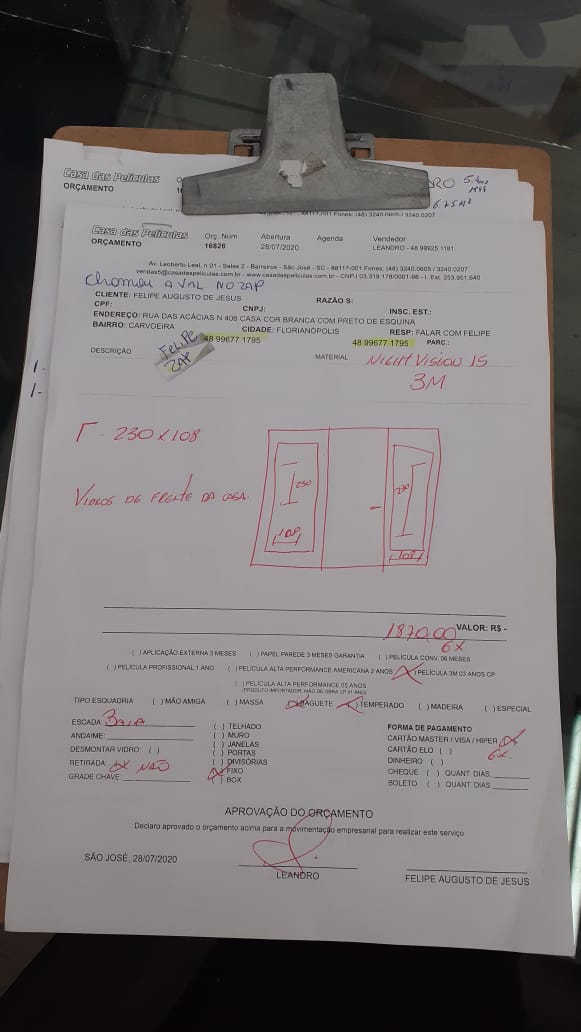 Casa das Películas
ORÇAMENTO
5.
6.25
Fones: (48) 3240.0605 / 3240.0207
Casa das Películas
ORÇAMENTO
Orç. Núm
16826
Abertura
28/07/2020
Agenda
Vendedor
LEANDRO - 48 99925 1181
Av. Leoberto Leal, n 01 - Salas 2 - Barreiros - São José - SC - 88117-001 Fones: (48) 3240.0605 / 3240.0207
vendas5@casadaspeliculas.com.br - www.casadaspeliculas.com.br - CNPJ 03.319.178/0001-98 - I. Est. 253.951.640
NO ZAP
CLIENTE: FELIPE AUGUSTO DE JESUS
RAZÃO S:
CPF:
CNPJ:
INSC. EST.:
ENDEREÇO: RUA DAS ACÁCIAS N 406 CASA COR BRANCA COM PRETO DE ESQUINA
BAIRRO: CARVOEIRA
CIDADE: FLORIANÓPOLIS
RESP: FALAR COM FELIPE
FELIPE ZAP
48 99677 1795
48 99677 1795
PARC.:
DESCRIÇÃO
MATERIAL
NIGHT VISION 15
3M
230 x 108
VIDROS DE FRENTE DA CASA.
230
108
230
108
1870,00
VALOR: R$ -
6X
( ) APLICAÇÃO EXTERNA 3 MESES ( ) PAPEL PAREDE 3 MESES GARANTIA ( ) PELÍCULA CONV. 06 MESES
( ) PELÍCULA PROFISSIONAL 1 ANO ( ) PELÍCULA ALTA PERFORMANCE AMERICANA 2 ANOS (X) PELÍCULA 3M 03 ANOS CP
( ) PELÍCULA ALTA PERFORMANCE 05 ANOS
(PRODUTO IMPORTADOR, MÃO DE OBRA CP 01 ANO)
TIPO ESQUADRIA ( ) MÃO AMIGA ( ) MASSA (X) BAGUETE (X) TEMPERADO ( ) MADEIRA ( ) ESPECIAL
ESCADA: BAIA
ANDAIME:
DESMONTAR VIDRO: ( )
RETIRADA: (X) NÃO
GRADE CHAVE:
( ) TELHADO
( ) MURO
( ) JANELAS
( ) PORTAS
( ) DIVISÓRIAS
(X) FIXO
( ) BOX
FORMA DE PAGAMENTO
CARTÃO MASTER / VISA / HIPER (X)
CARTÃO ELO ( )
6X.
DINHEIRO ( )
CHEQUE ( ) QUANT. DIAS:
BOLETO ( ) QUANT. DIAS
APROVAÇÃO DO ORÇAMENTO
Declaro aprovado o orçamento acima para a movimentação empresarial para realizar este serviço
SÃO JOSÉ, 28/07/2020
LEANDRO
FELIPE AUGUSTO DE JESUS